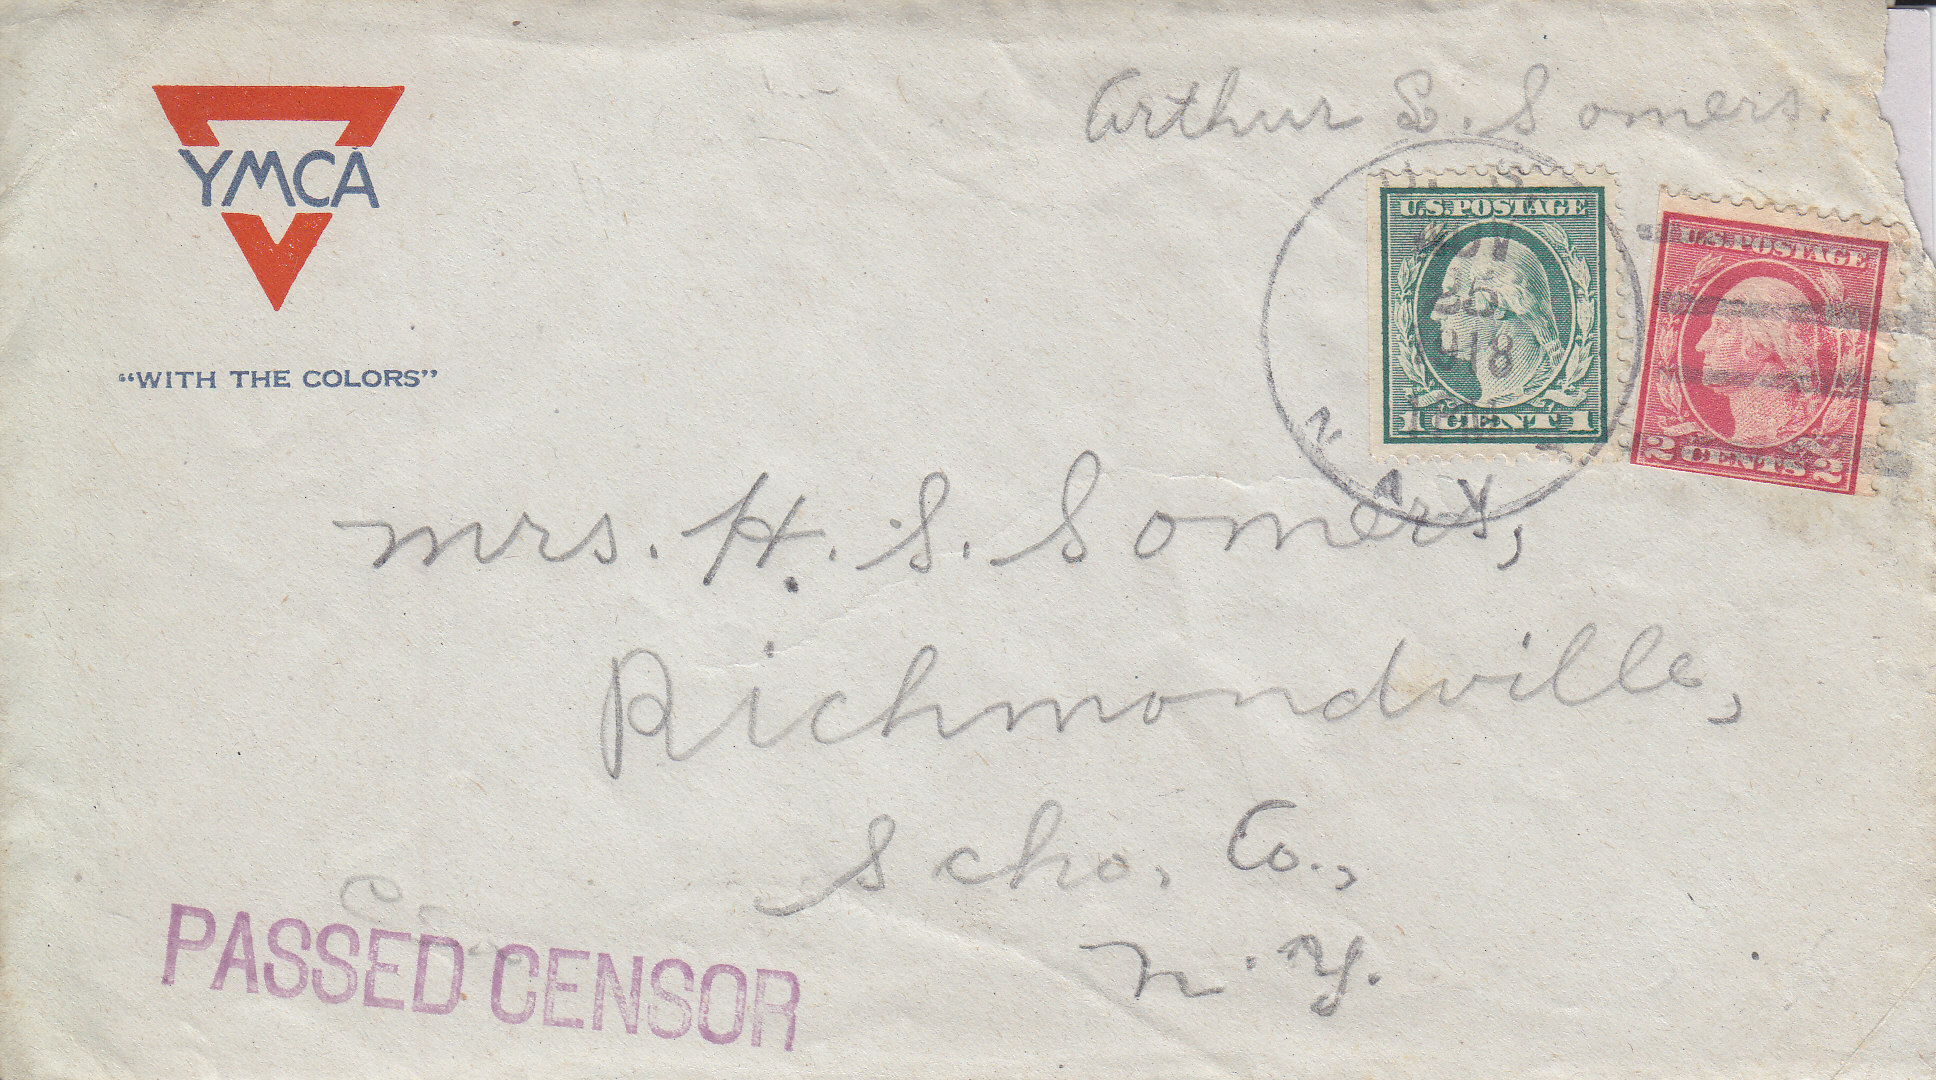 Arthur L. Somers.
YMCA
"WITH THE COLORS"
U. S.
NOV
25
1918
N A V Y
U.S. POSTAGE
1 CENT 1
U.S. POSTAGE
2 CENTS 2
Mrs. H. S. Somers,
Richmondville,
Scho. Co.,
N. Y.
PASSED CENSOR